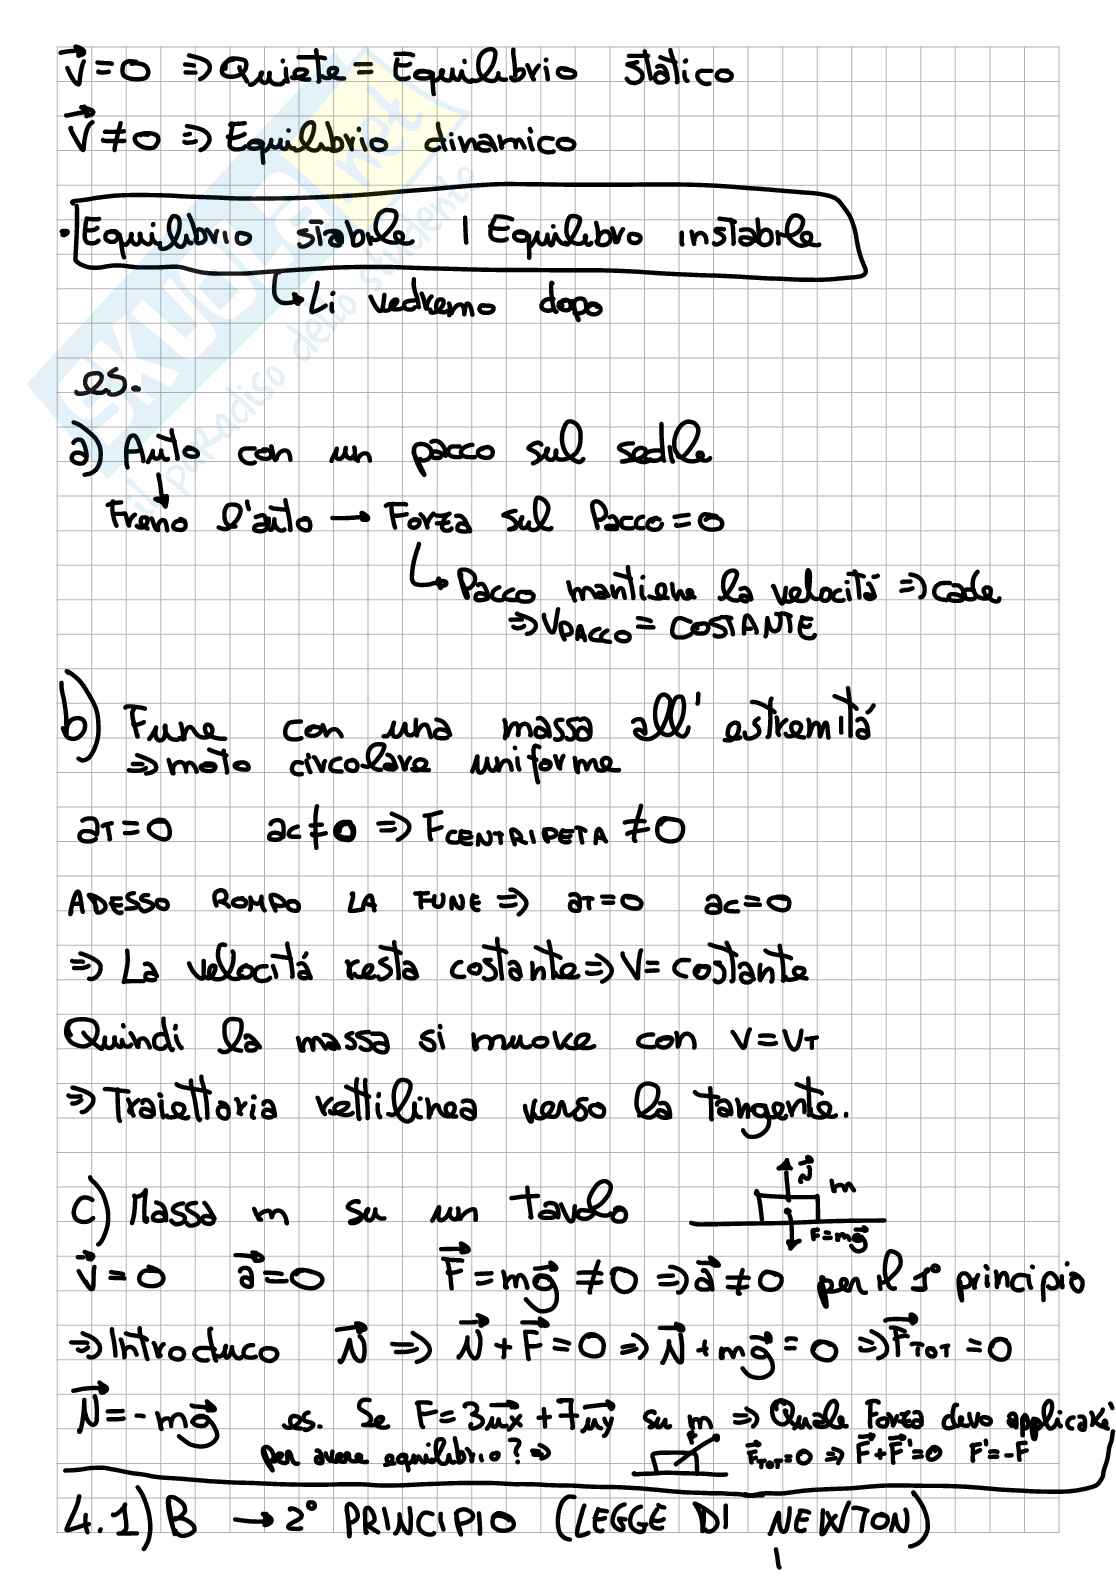 v⃗=0 ⇒ Quiete = Equilibrio statico
v⃗≠0 ⇒ Equilibrio dinamico
• Equilibrio stabile | Equilibro instabile
↳ Li vedremo dopo
es.
a) Auto con un pacco sul sedile
↓
Freno l'auto → Forza sul Pacco=0
↳ Pacco mantiene la velocitá ⇒ cade
⇒ V_PACCO = COSTANTE
b) Fune con una massa all'estremitá
⇒ moto circolare uniforme
a_T=0 a_C≠0 ⇒ F_CENTRIPETA ≠0
ADESSO ROMPO LA FUNE ⇒ a_T=0 a_C=0
⇒ La velocitá resta costante ⇒ V= costante
Quindi la massa si muove con v=v_T
⇒ Traiettoria rettilinea verso la tangente.
c) Massa m su un tavolo
N⃗ m
F=mg⃗
v⃗=0 a⃗=0 F⃗=mg⃗ ≠0 ⇒ a⃗≠0 per il 1° principio
⇒ Introduco N⃗ ⇒ N⃗+F⃗=0 ⇒ N⃗+mg⃗=0 ⇒ F⃗_TOT=0
N⃗=-mg⃗ es. Se F=3u⃗x+7u⃗y su m ⇒ Quale Forza devo applicare
per avere equilibrio? ⇒ F F⃗_TOT=0 ⇒ F⃗+F⃗'=0 F'=-F
4.1) B → 2° PRINCIPIO (LEGGE DI NEWTON)
SKUOLA.net
il paradiso dello studente